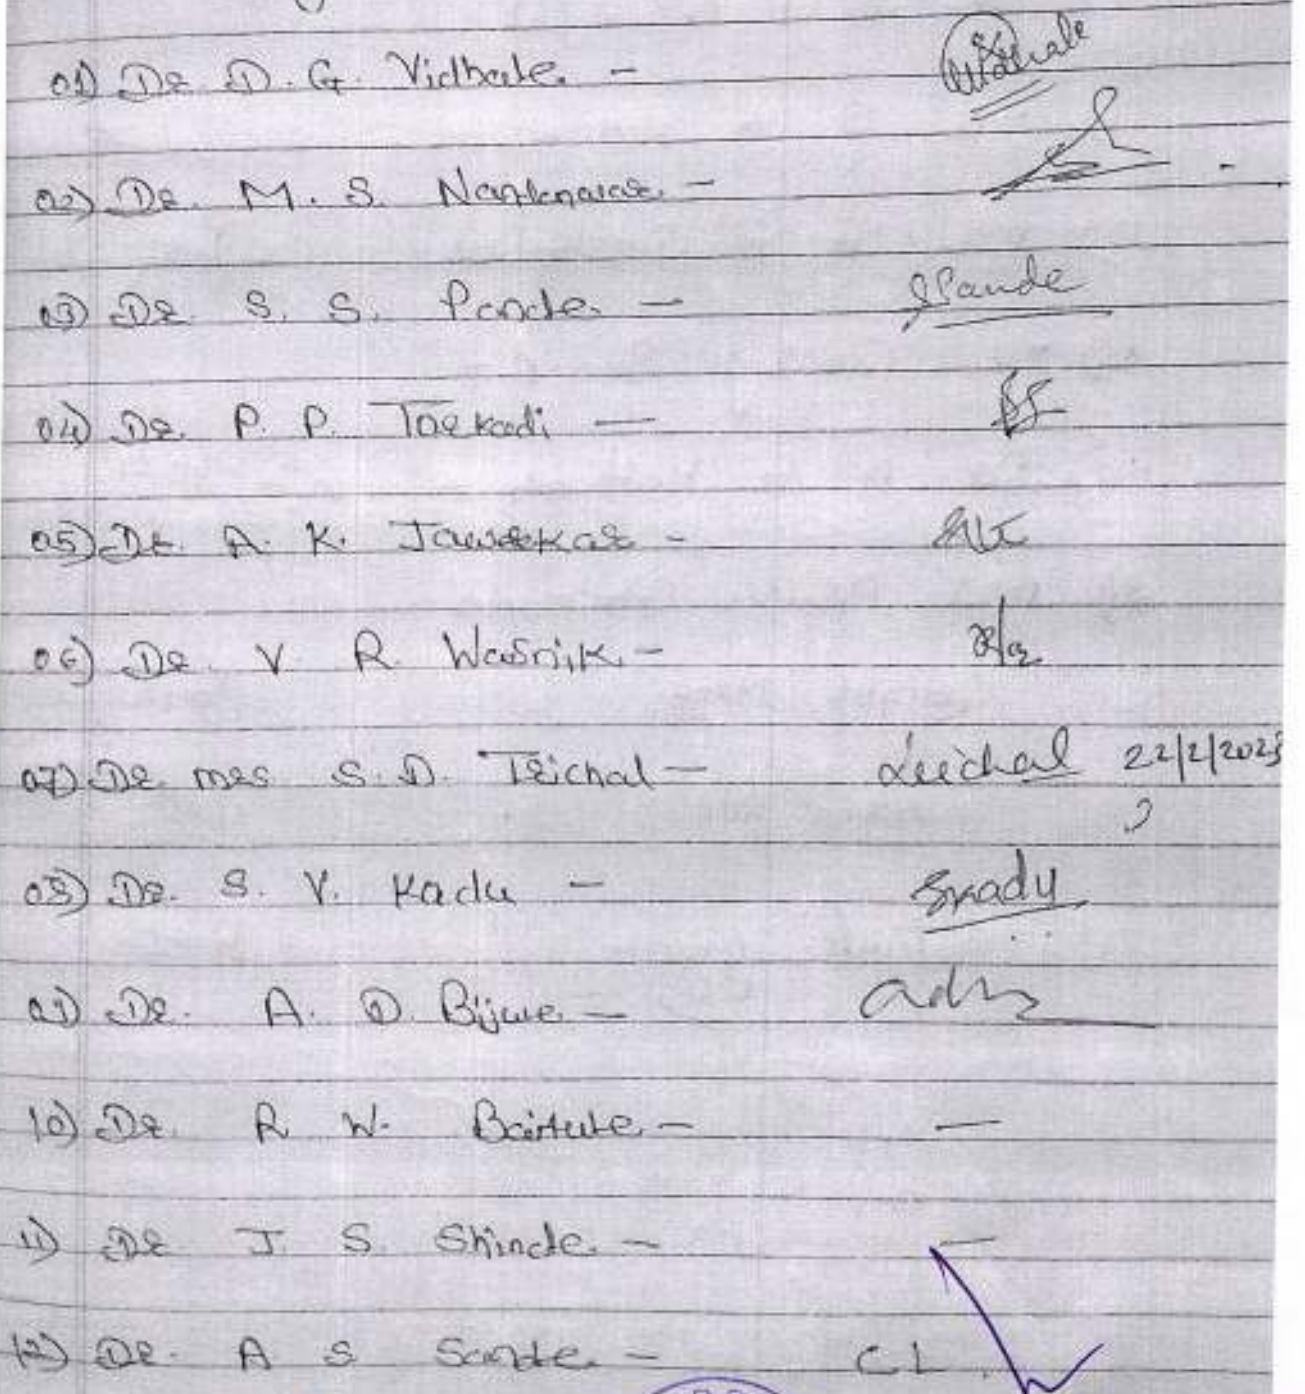 01) Dr. D. G. Vidhate -
02) Dr. M. S. -
03) Dr. S. S. Pande - SPande
04) Dr. P. P. Tarkadi -
05) Dr. A. K. Jawarkar -
06) Dr. V R Wasnik -
07) Dr. Mrs S. D. Trichal - Trichal 22/2/2023
08) Dr. S. V. Kadu - SKadu
09) Dr. A. D. Bijwe -
10) Dr. R W. -  —
11) Dr J. S. Shinde - —
12) Dr. A S - CL